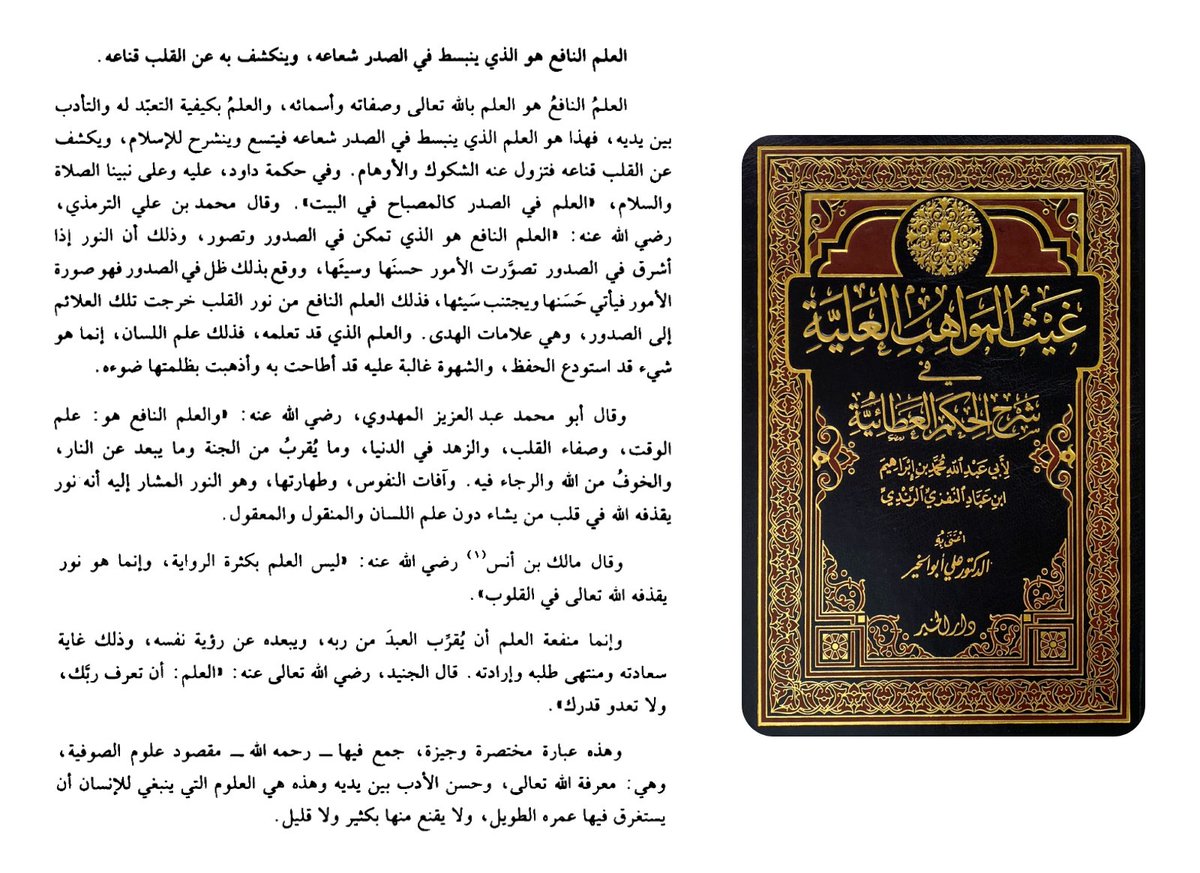 العلم النافع هو الذي ينبسط في الصدر شعاعه، وينكشف به عن القلب قناعه.
العلمُ النافعُ هو العلم بالله تعالى وصفاته وأسمائه، والعلمُ بكيفية التعبّد له والتأدب
بين يديه، فهذا هو العلم الذي ينبسط في الصدر شعاعه فيتسع وينشرح للإسلام، ويكشف
عن القلب قناعه فتزول عنه الشكوك والأوهام. وفي حكمة داود، عليه وعلى نبينا الصلاة
والسلام، «العلم في الصدر كالمصباح في البيت». وقال محمد بن علي الترمذي،
رضي الله عنه: «العلم النافع هو الذي تمكن في الصدور وتصور، وذلك أن النور إذا
أشرق في الصدور تصوَّرت الأمور حسنَها وسيئَها، ووقع بذلك ظل في الصدور فهو صورة
الأمور فيأتي حَسَنها ويجتنب سَيئها، فذلك العلم النافع من نور القلب خرجت تلك العلائم
إلى الصدور، وهي علامات الهدى. والعلم الذي قد تعلمه، فذلك علم اللسان، إنما هو
شيء قد استودع الحفظ، والشهوة غالبة عليه قد أطاحت به وأذهبت بظلمتها ضوءه.
وقال أبو محمد عبد العزيز المهدوي، رضي الله عنه: «والعلم النافع هو: علم
الوقت، وصفاء القلب، والزهد في الدنيا، وما يُقربُ من الجنة وما يبعد عن النار،
والخوفُ من الله والرجاء فيه. وآفات النفوس، وطهارتها، وهو النور المشار إليه أنه نور
يقذفه الله في قلب من يشاء دون علم اللسان والمنقول والمعقول.
وقال مالك بن أنس(١) رضي الله عنه: «ليس العلم بكثرة الرواية، وإنما هو نور
يقذفه الله تعالى في القلوب».
وإنما منفعة العلم أن يُقرِّب العبدَ من ربه، ويبعده عن رؤية نفسه، وذلك غاية
سعادته ومنتهى طلبه وإرادته. قال الجنيد، رضي الله تعالى عنه: «العلم: أن تعرف ربَّك،
ولا تعدو قدرك».
وهذه عبارة مختصرة وجيزة، جمع فيها ــ رحمه الله ــ مقصود علوم الصوفية،
وهي: معرفة الله تعالى، وحسن الأدب بين يديه وهذه هي العلوم التي ينبغي للإنسان أن
يستغرق فيها عمره الطويل، ولا يقنع منها بكثير ولا قليل.
غَيْثُ المَوَاهِبِ العَلِيَّةِ
في
شَرْحِ الحِكَمِ العَطَائِيَّةِ
لِأَبِي عَبْدِ اللهِ مُحَمَّدِ بْنِ إِبْرَاهِيمَ
ابْنِ عَبَّادِ النَّفْزِيِّ الرَّنْدِيِّ
اعْتَنَى بِهِ
الدكتور علي أبو الخير
دار الخير